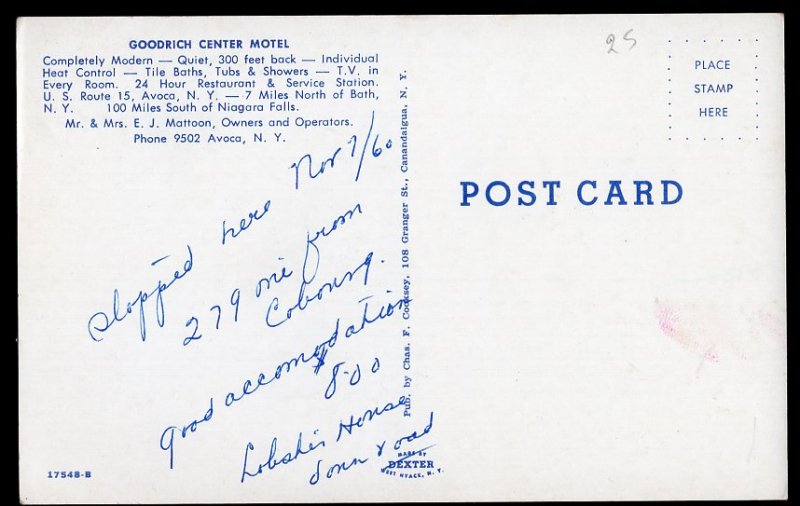 GOODRICH CENTER MOTEL
Completely Modern — Quiet, 300 feet back — Individual
Heat Control — Tile Baths, Tubs & Showers — T.V. in
Every Room. 24 Hour Restaurant & Service Station.
U. S. Route 15, Avoca, N. Y. — 7 Miles North of Bath,
N. Y. 100 Miles South of Niagara Falls.
Mr. & Mrs. E. J. Mattoon, Owners and Operators.
Phone 9502 Avoca, N. Y.
Stopped here Nov 7/60
279 mi from
Cobourg.
Good accomodation
$8.00
Lobster House
down road
17548-B
Pub. by Chas. F. Cooksey, 108 Granger St., Canandaigua, N. Y.
MADE BY
DEXTER
WEST NYACK, N. Y.
25
PLACE
STAMP
HERE
POST CARD